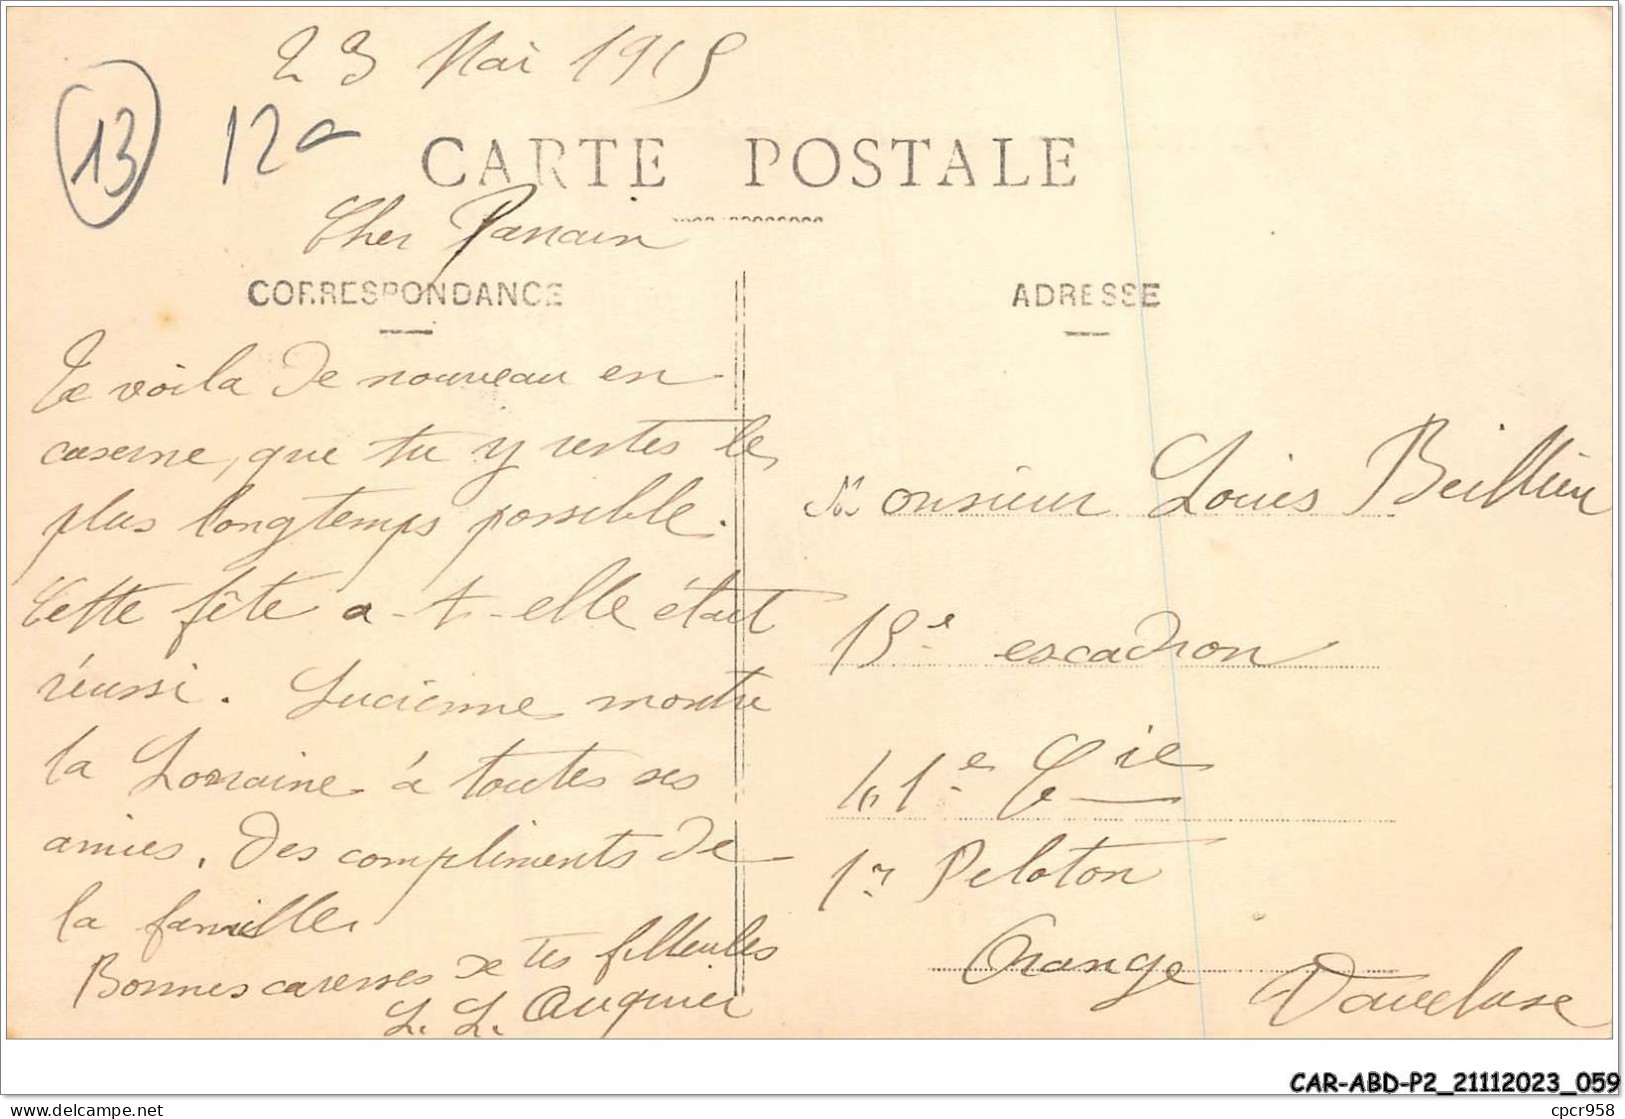 23 Mai 1915
13
12
CARTE POSTALE
Cher Parrain
CORRESPONDANCE
Te voila de nouveau en
caserne, que tu y restes le
plus longtemps possible.
Cette fête a-t-elle étact
réussi. Lucienne montre
la Lorraine à toutes ses
amies. Des compliments de
la famille
Bonnes caresses de tes filleules
L. L. Auquier
ADRESSE
Monsieur Louis Beillieu
15e escadron
41e Cie
1r Peloton
Orange Vaucluse
CAR-ABD-P2_21112023_059
www.delcampe.net
cpcr958